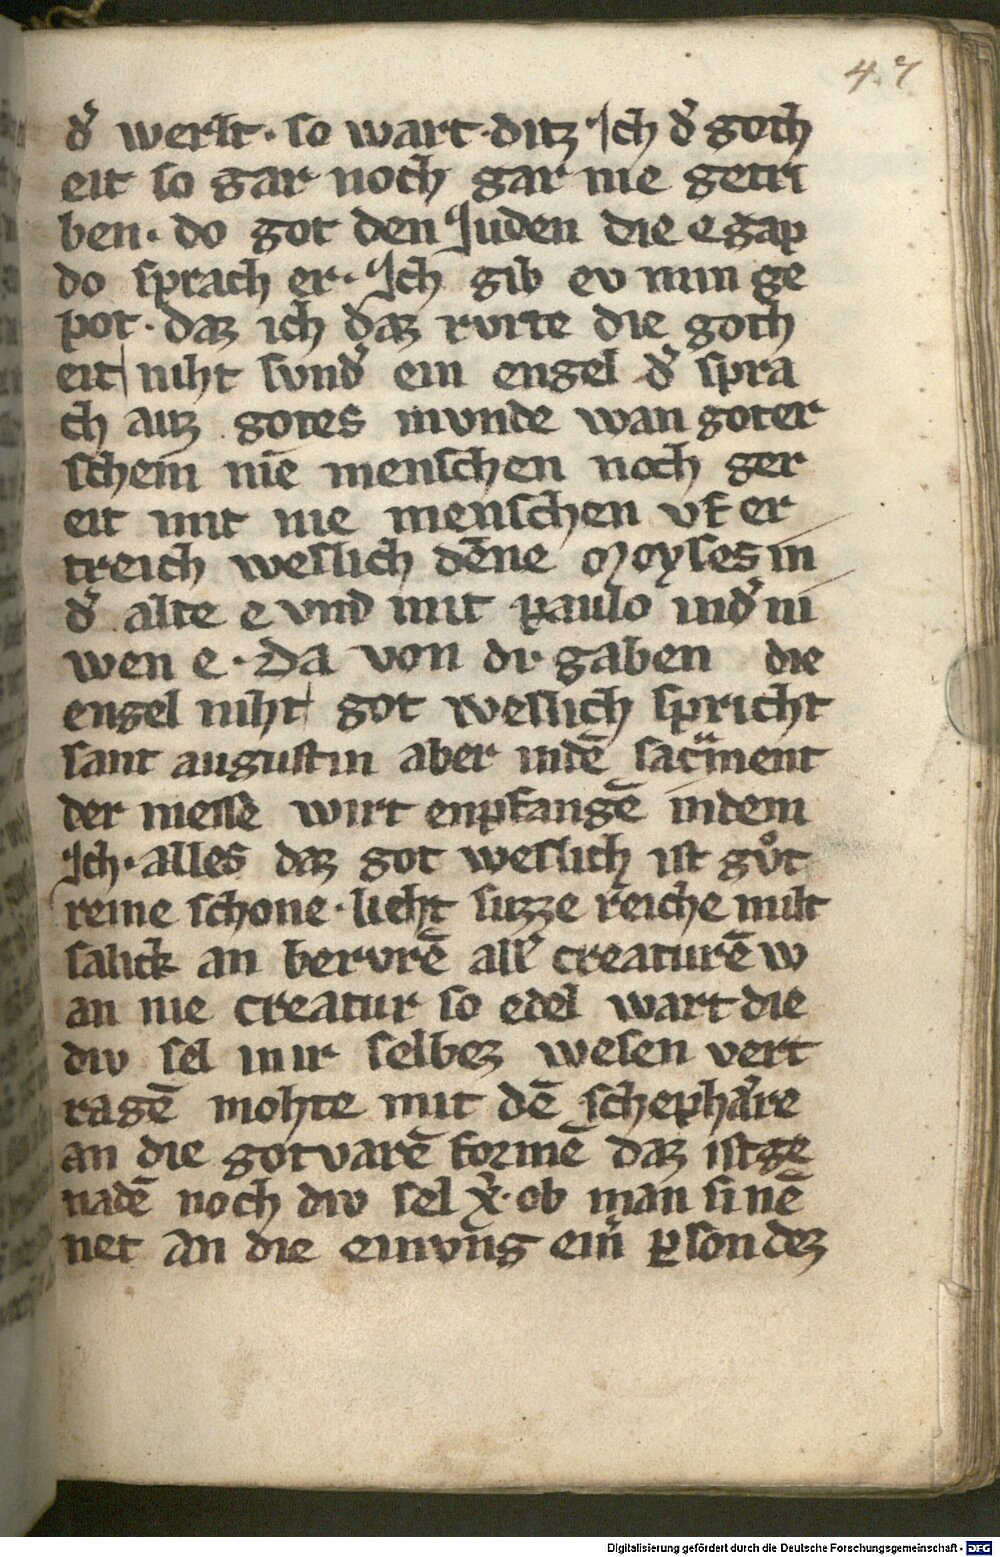 47
d̕ werlt · so wart · ditz · Ich d̕ goth
eit so gar noch gar nie getri
ben · do got den Juden die e gap
do sprach er · Ich gib ev min ge
pot · daz ich daz rvrte die goth
eit niht svnd̕ ein engel d̕ spra
ch auz gotes mvnde wan got er
schein nie menschen noch ger
eit mit nie menschen vf er
treich weslich dēne Moyses in
d̕ alte e vnd mit paulo ind̕ ni
wen e · Da von dr gaben die
engel niht got weslich spricht
sant augustin aber indē sacͣment
der messe wirt enpfangē indem
Ich · alles daz got weslich ist gůt
reine schone · lieht suzze reiche milt
salick an bervrē all̕ creaturē w
an nie creatur so edel wart die
div sel in ir selbez wesen vert
ragē mohte mit dē schephare
an die gotvarē formē daz ist ge
nadē noch div sel x̕· ob man si nē
net An die einvng ein̕ ꝑson dez
Digitalisierung gefördert durch die Deutsche Forschungsgemeinschaft - DFG